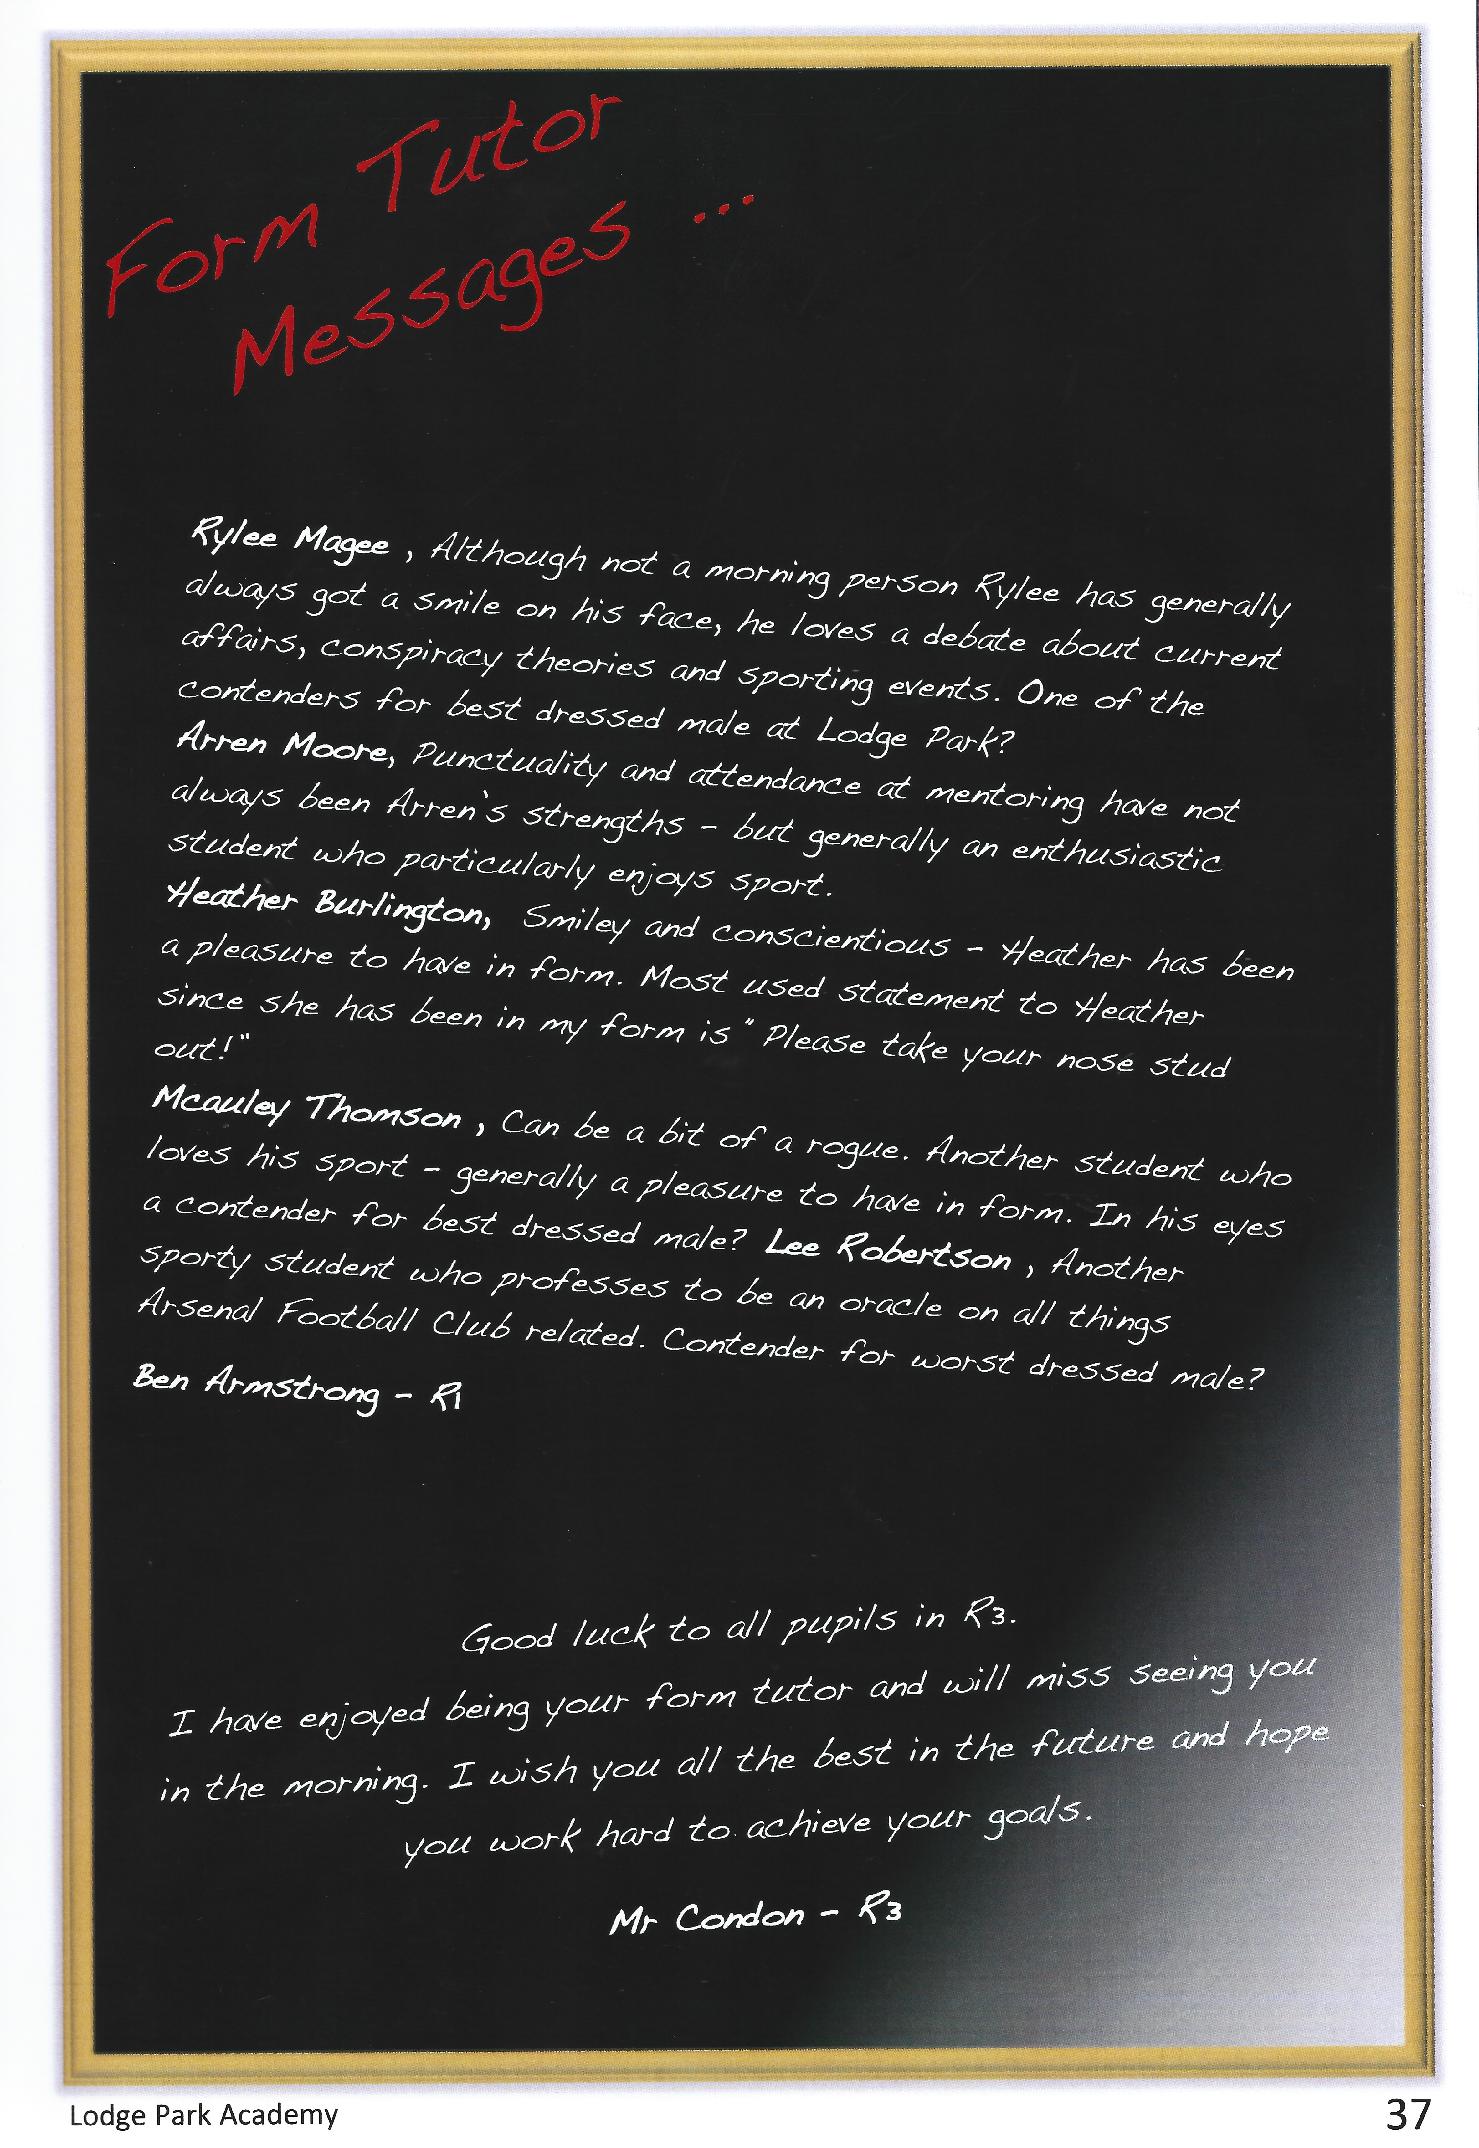 Form Tutor
Messages ...
Rylee Magee , Although not a morning person Rylee has generally
always got a smile on his face, he loves a debate about current
affairs, conspiracy theories and sporting events. One of the
contenders for best dressed male at Lodge Park?
Arren Moore, Punctuality and attendance at mentoring have not
always been Arren's strengths - but generally an enthusiastic
student who particularly enjoys sport.
Heather Burlington, Smiley and conscientious - Heather has been
a pleasure to have in form. Most used statement to Heather
since she has been in my form is " Please take your nose stud
out!"
Mcauley Thomson , Can be a bit of a rogue. Another student who
loves his sport - generally a pleasure to have in form. In his eyes
a contender for best dressed male? Lee Robertson , Another
sporty student who professes to be an oracle on all things
Arsenal Football Club related. Contender for worst dressed male?
Ben Armstrong - R1
Good luck to all pupils in R3.
I have enjoyed being your form tutor and will miss seeing you
in the morning. I wish you all the best in the future and hope
you work hard to achieve your goals.
Mr Condon - R3
Lodge Park Academy
37